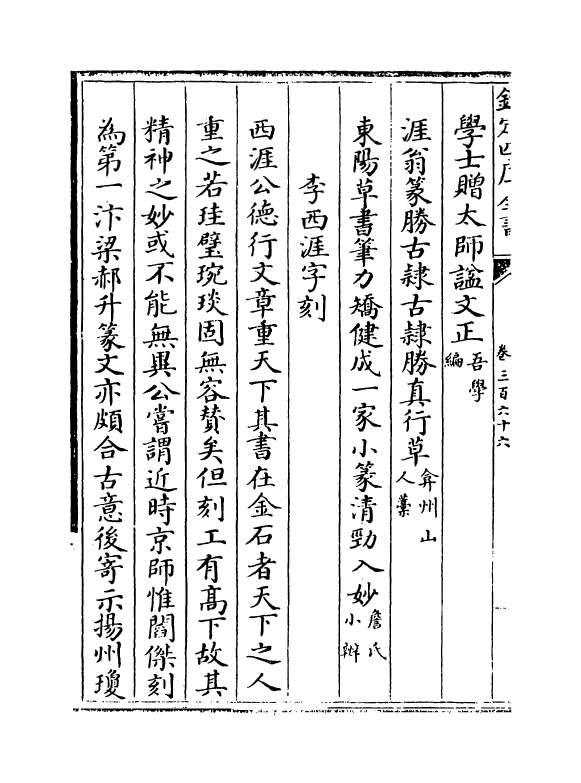 欽定四庫全書
卷三百六十六
學士贈太師諡文正吾學編
涯翁篆勝古隸古隸勝真行草弇州山人藁
東陽草書筆力矯健成一家小篆清勁入妙詹氏小辦
李西涯字刻
西涯公德行文章重天下其書在金石者天下之人
重之若珪璧琬琰固無容賛矣但刻工有髙下故其
精神之妙或不能無異公嘗謂近時京師惟閻傑刻
為第一汴梁郝升篆文亦頗合古意後寄示揚州瓊